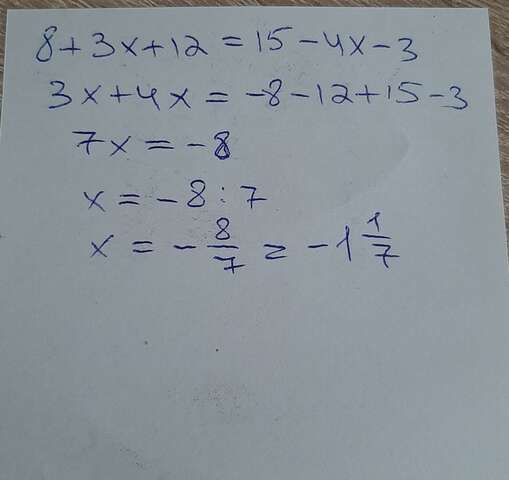 8+3x+12=15-4x-3
3x+4x=-8-12+15-3
7x=-8
x=-8:7
x=-8/7=-1 1/7